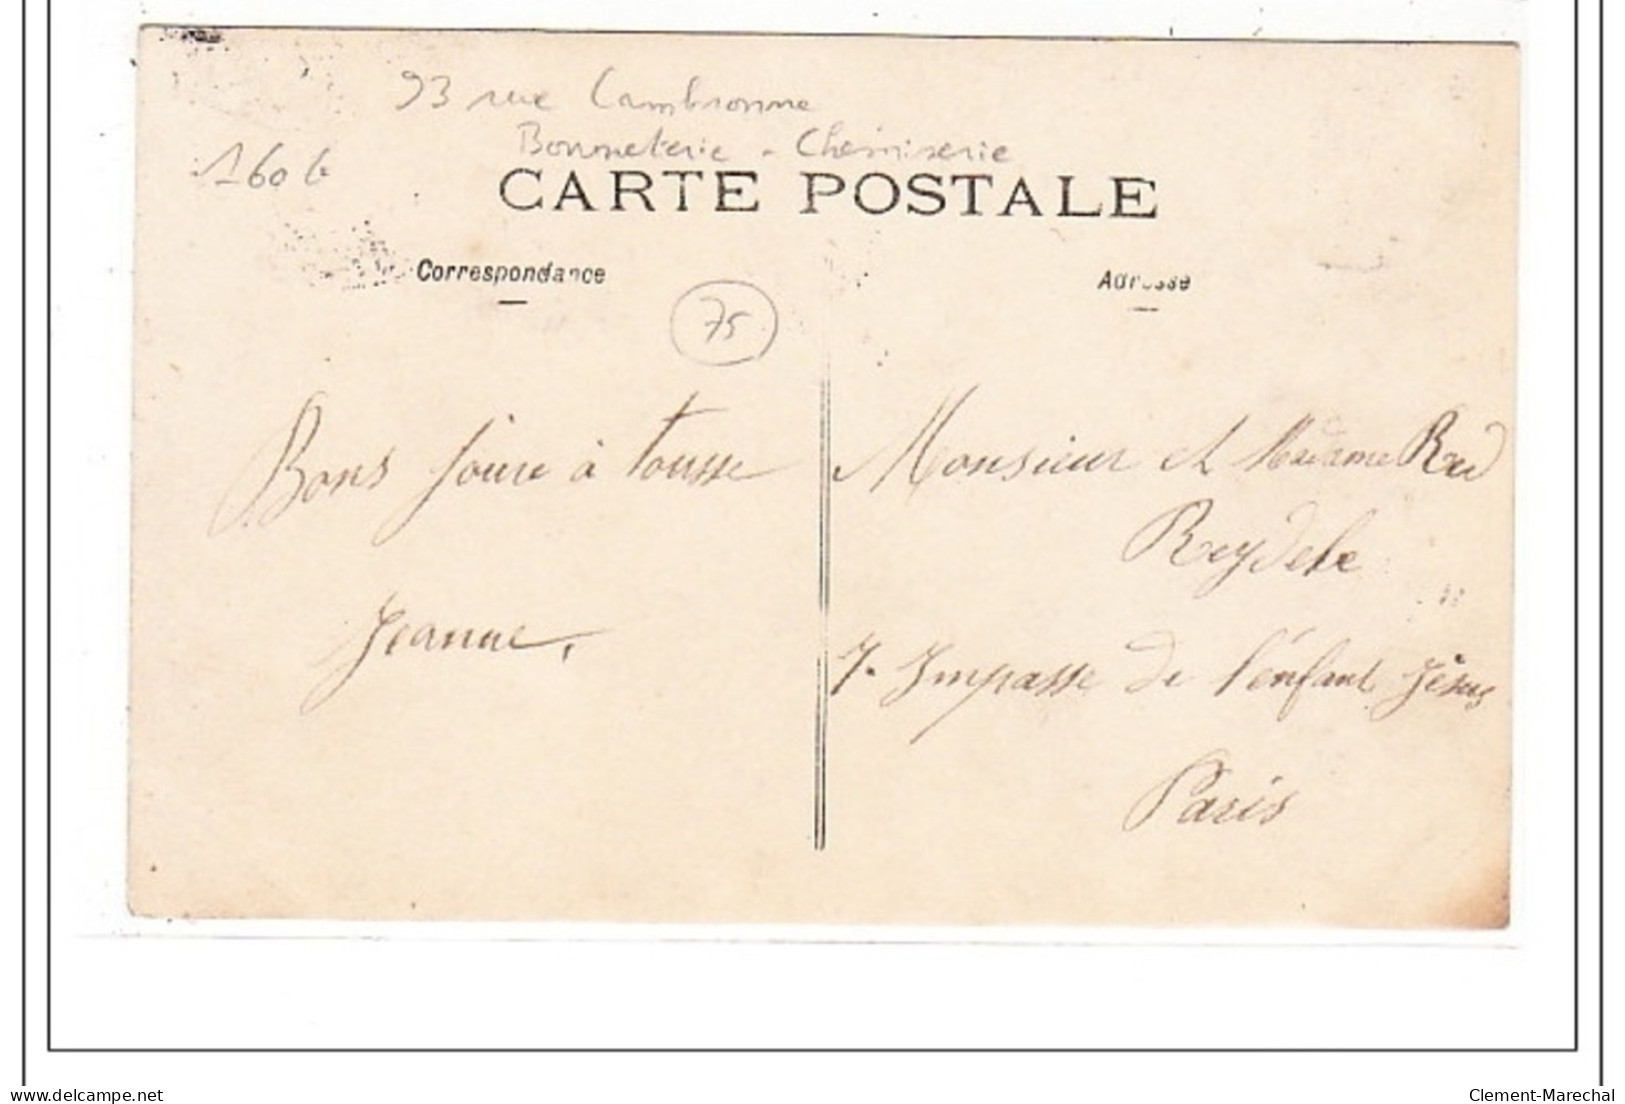 93 rue Cambronne
Bonneterie - Chemiserie
160 b
CARTE POSTALE
Correspondance
Adresse
75
Bons soire à tousse
Jeanne.
Monsieur et Madame
Reydele
7. Impasse de l'énfant Jésus
Paris
delcampe.net
Clement-Marechal